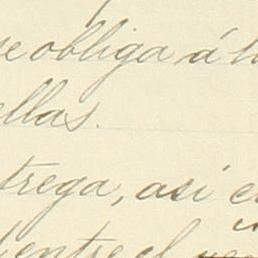 se obliga á
ellas.
trega, así
entre el